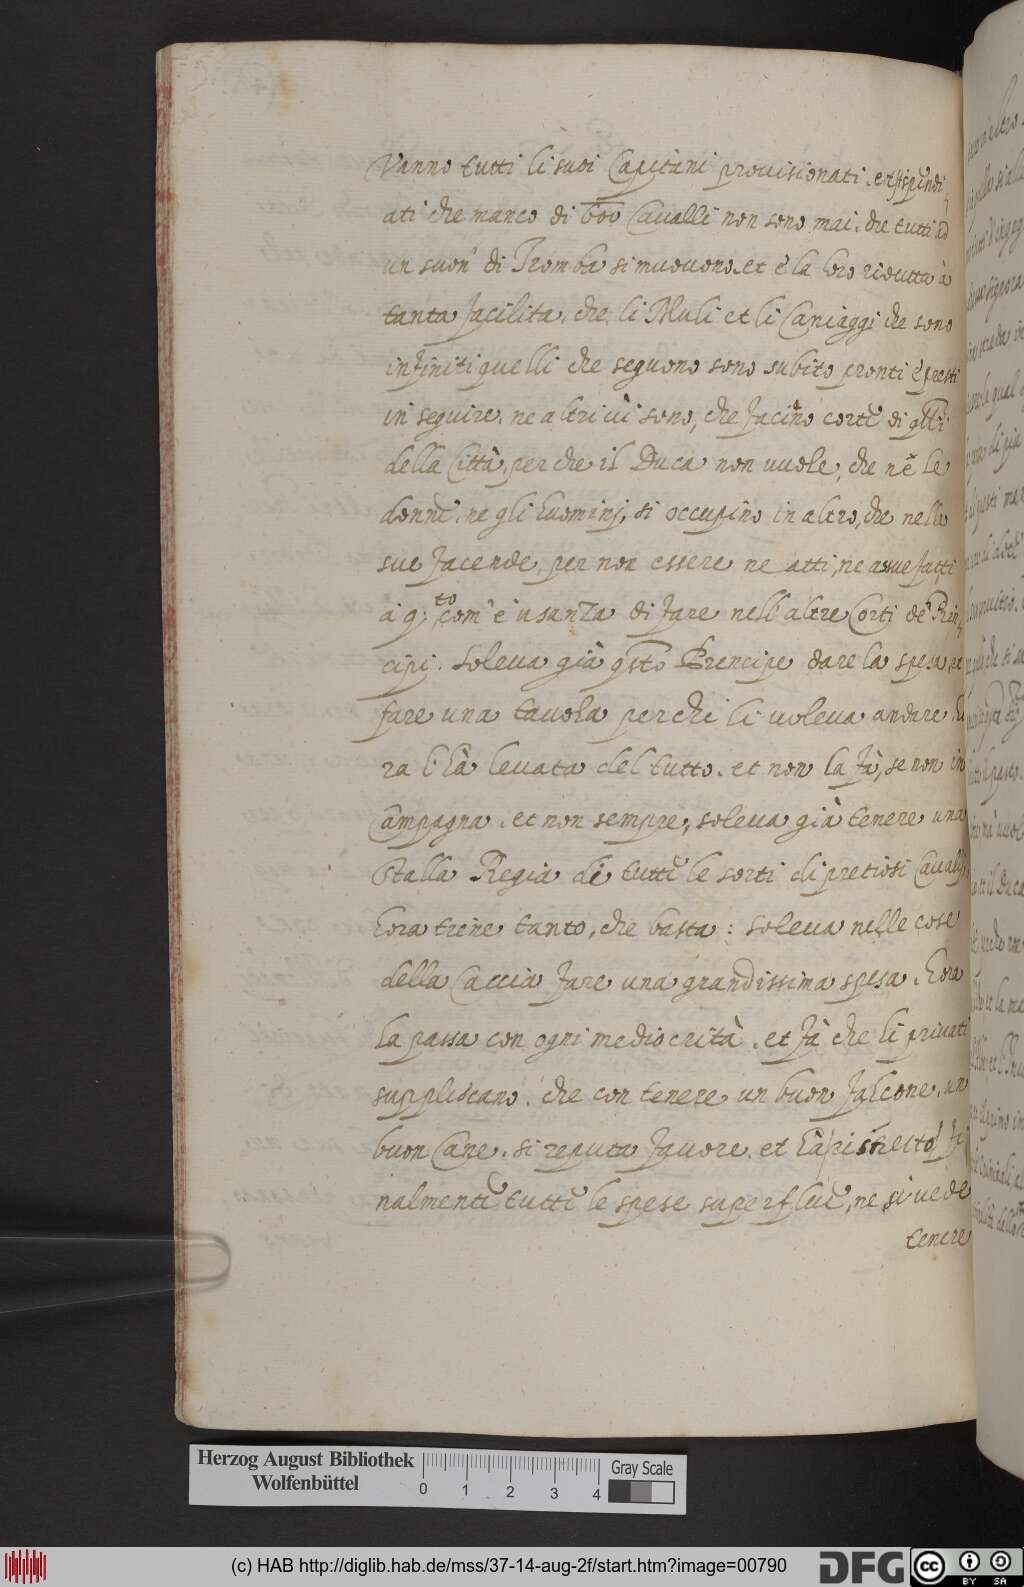 Vanno tutti li suoi Capitani provisionati. et stipendi
ati che manco di 600 Cavalli non sono mai. che tutti ad
un suon' di Tromba si muovono. et è la loro ridutta à
tanta facilita, che li Muli et li Cariaggi che sono
infiniti quelli che seguono sono subito pronti è presti
in seguire. ne altri vi sono, che facino corte di qlli
della Città, perche il Duca non vuole, che nè le
donne, ne gli huomini, si occupino in altro, che nelle
sue facende, per non essere ne atti, ne assuefatti
à q.to com' è usanza di fare nell' altre Corti de Prin
cipi. Soleva già qsto Prencipe dare la spesa, pa
fare una tavola per chi li voleva andare ho
ra l' hà levata del tutto. et non la fà, se non in
Campagna. et non sempre, soleva già tenere una
Stalla Regia di tutte le sorti di pretiosi Cavalli
hora tiene tanto, che basta: soleva nelle cose
della Caccia fare una grandissima spesa. hora
la passa con ogni mediocrità. et fà che li privati
suppliscano. che con tenere un buon falcone, un
buon Cane. si reputa favore. et hà ristretto fi
nalmente tutte le spese superflue, ne si vede
tenere
Herzog August Bibliothek
Wolfenbüttel
0 1 2 3 4
Gray Scale
(c) HAB http://diglib.hab.de/mss/37-14-aug-2f/start.htm?image=00790
DFG
cc BY SA